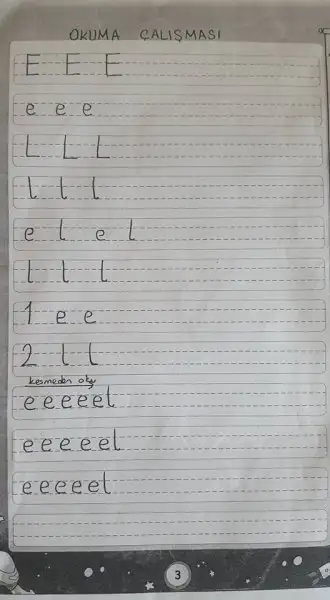 OKUMA ÇALIŞMASI
E E E
e e e
L L L
l l l
e l e l
l l l
1 e e
2 l l
kesmeden oku
eeeeel
eeeeel
eeeeel
3